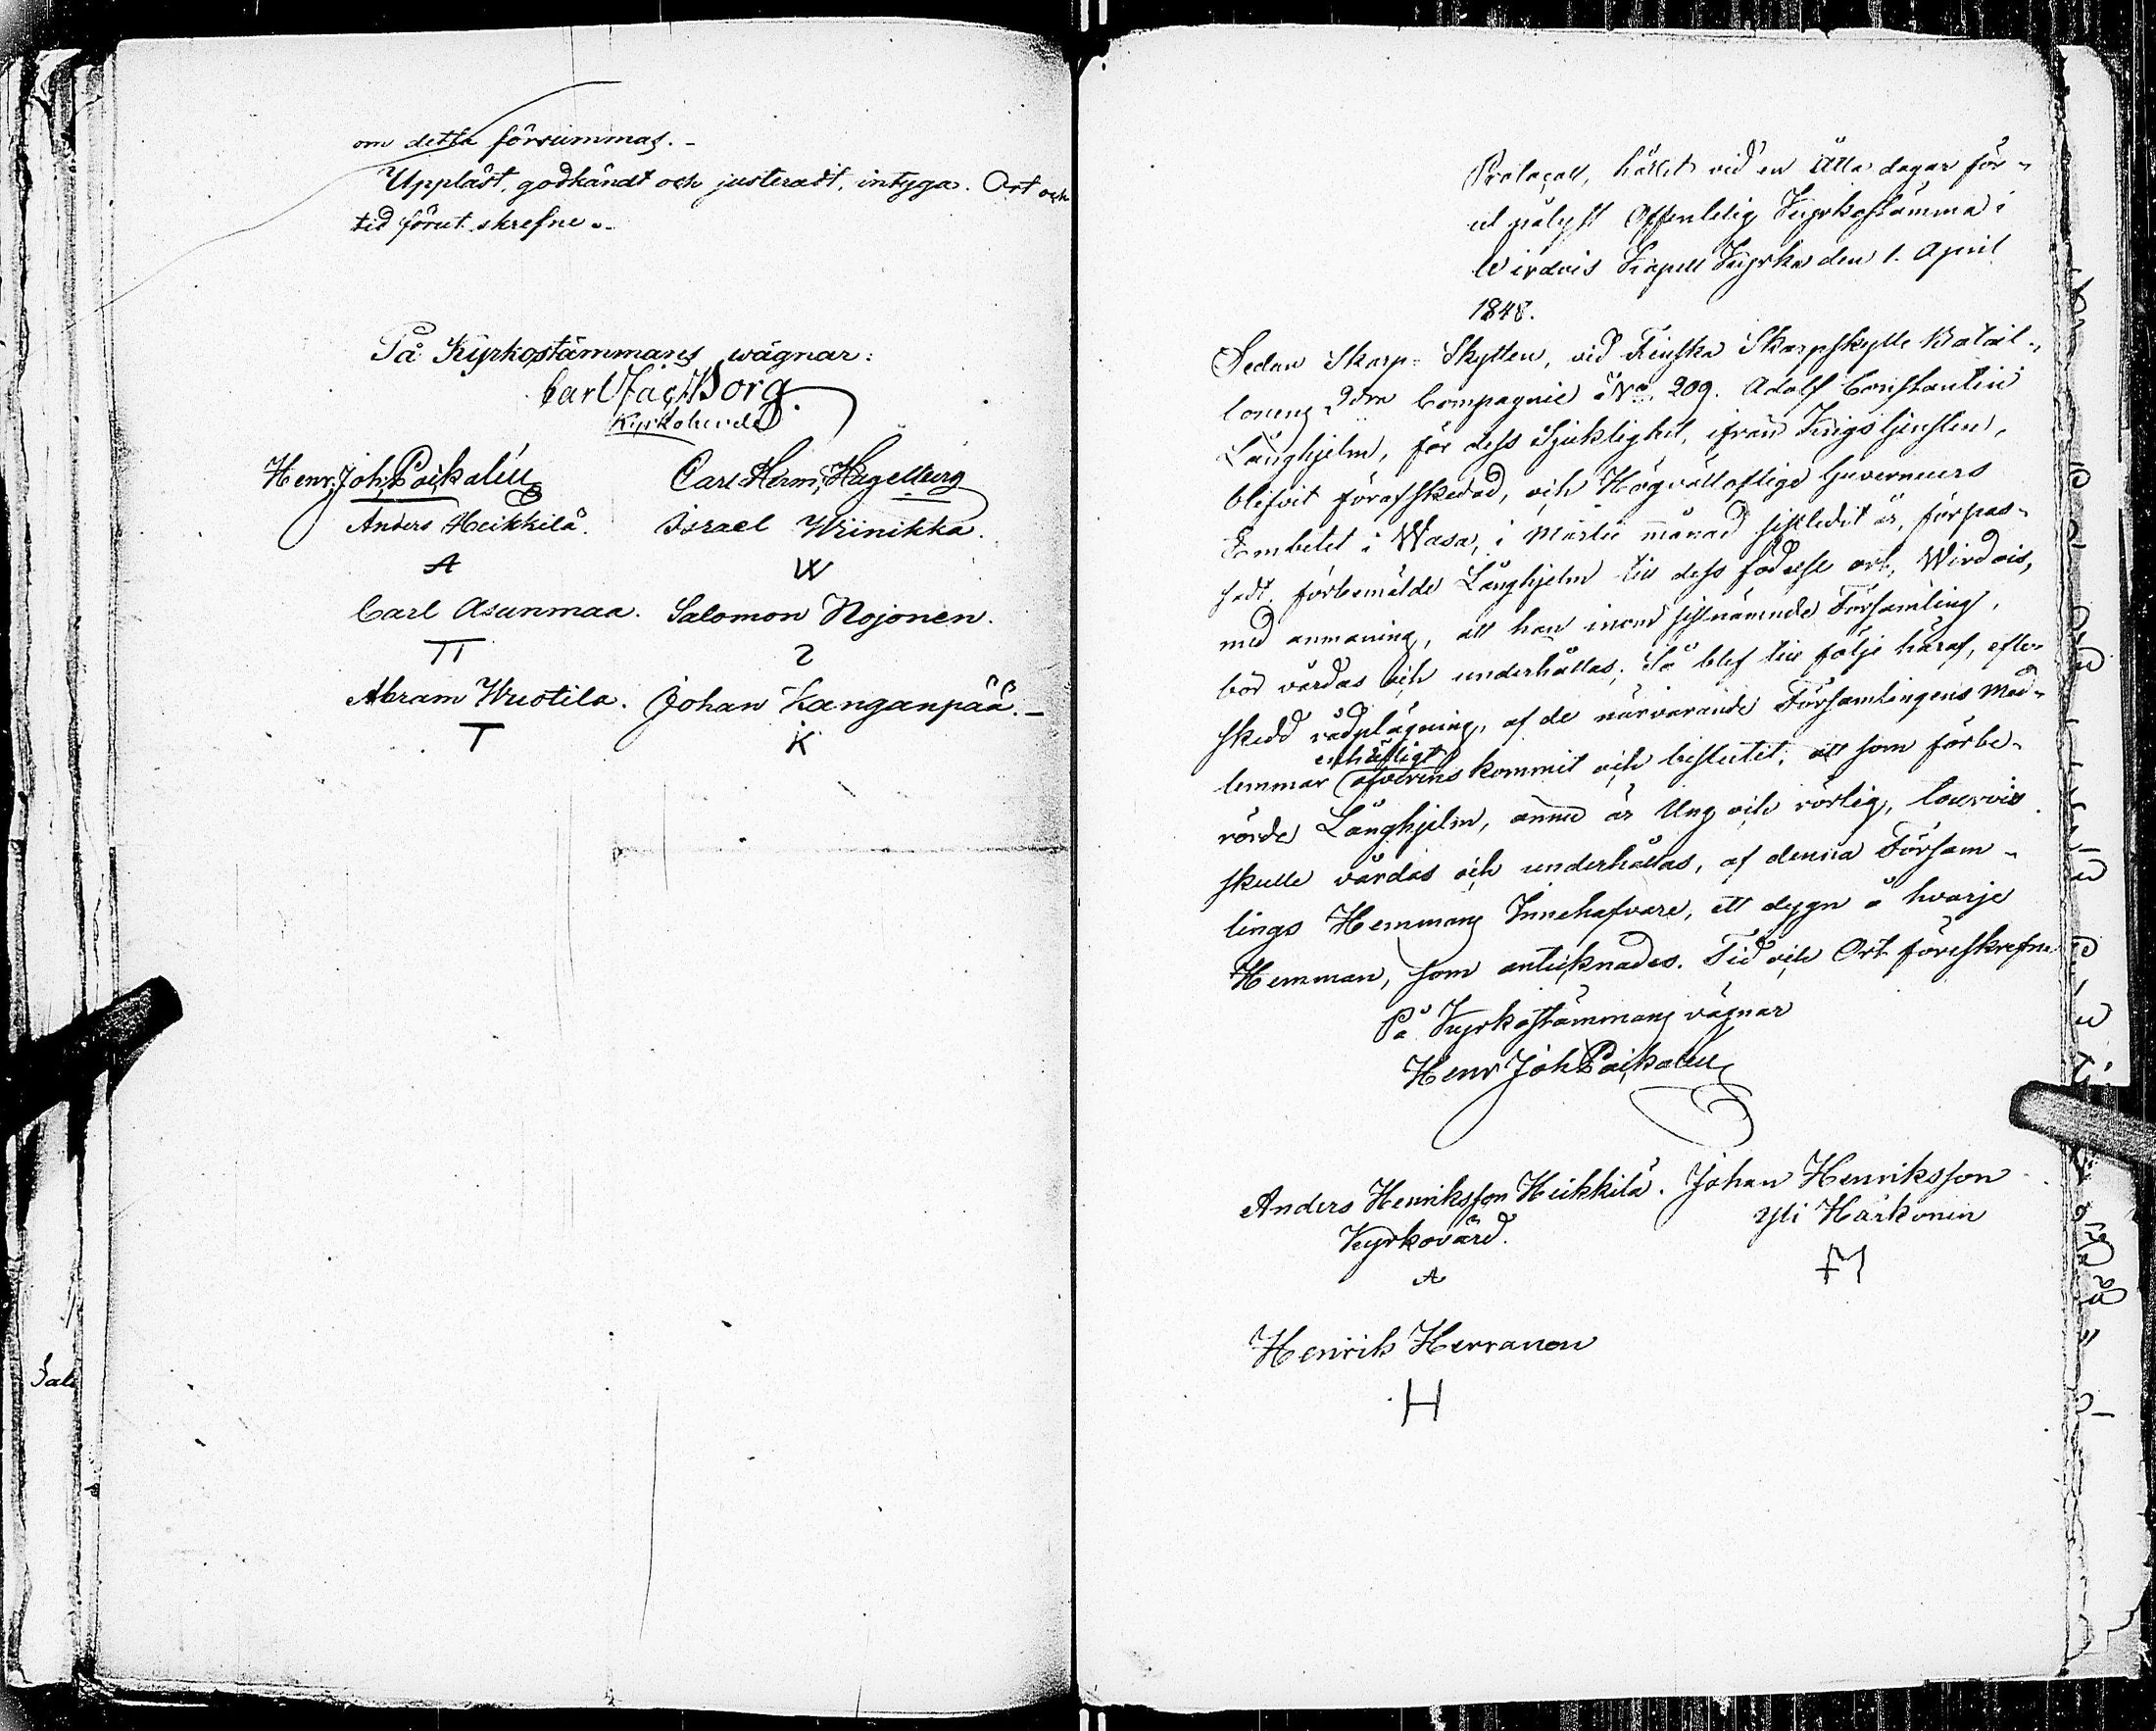 om detta försummas. -
Uppläst, godkändt och justeradt, intyga. Ort och
tid förut skrefne. -
På Kyrkostämmans wägnar:
Carl Jac. Borg
Kyrkoherde
Henr. Joh. Poikalin Carl Herm. Hagelberg
Anders Heikkilä. Israel Wiinikka.
A W
Carl Asunmaa. Salomon Nojonen.
TT 2
Abram Wuotila. Johan Kanganpää. -
T K
Protocoll, hållet vid en Åtta dagar för-
ut pålyst Offentelig Kyrkostämma i
Wirdois Kapell Kyrka den 1. April
1848.
Sedan Skarp-Skytten, vid Finska Skarpskytte Batail-
lonens 2dra Compagnie No 209. Adolf Constantin
Långhjelm, för dess Sjuklighet, ifrån Krigstjensten,
blifvit förafskedad, och Högvälloflige Guverneurs
Embetet i Wasa, i Martii månad sistledit år, förpas-
sadt förbemälde Långhjelm till dess födelse ort, Wirdois,
med anmaning, att han inom sistnämnde Församling,
bör vårdas och underhållas; Så blef till följe häraf, efter
skedd rådplägning, af de närvarande Församlingens Med-
enhälligt
lemmar öfverenskommit och beslutit, att som förbe-
rörde Långhjelm, ännu är Ung och rörlig, lourvis
skulle vårdas och underhållas, af denna Försam-
lings Hemmans Innehafvare, ett dygn å hvarje
Hemman, som antecknades. Tid och Ort föreskrefne
På Kyrkostämmans vägnar
Henr Joh Poikalin
Anders Henriksson Heikkilä. Johan Henriksson
Kyrkovärd. Yli Härkönen
A M
Henrik Herranen
H